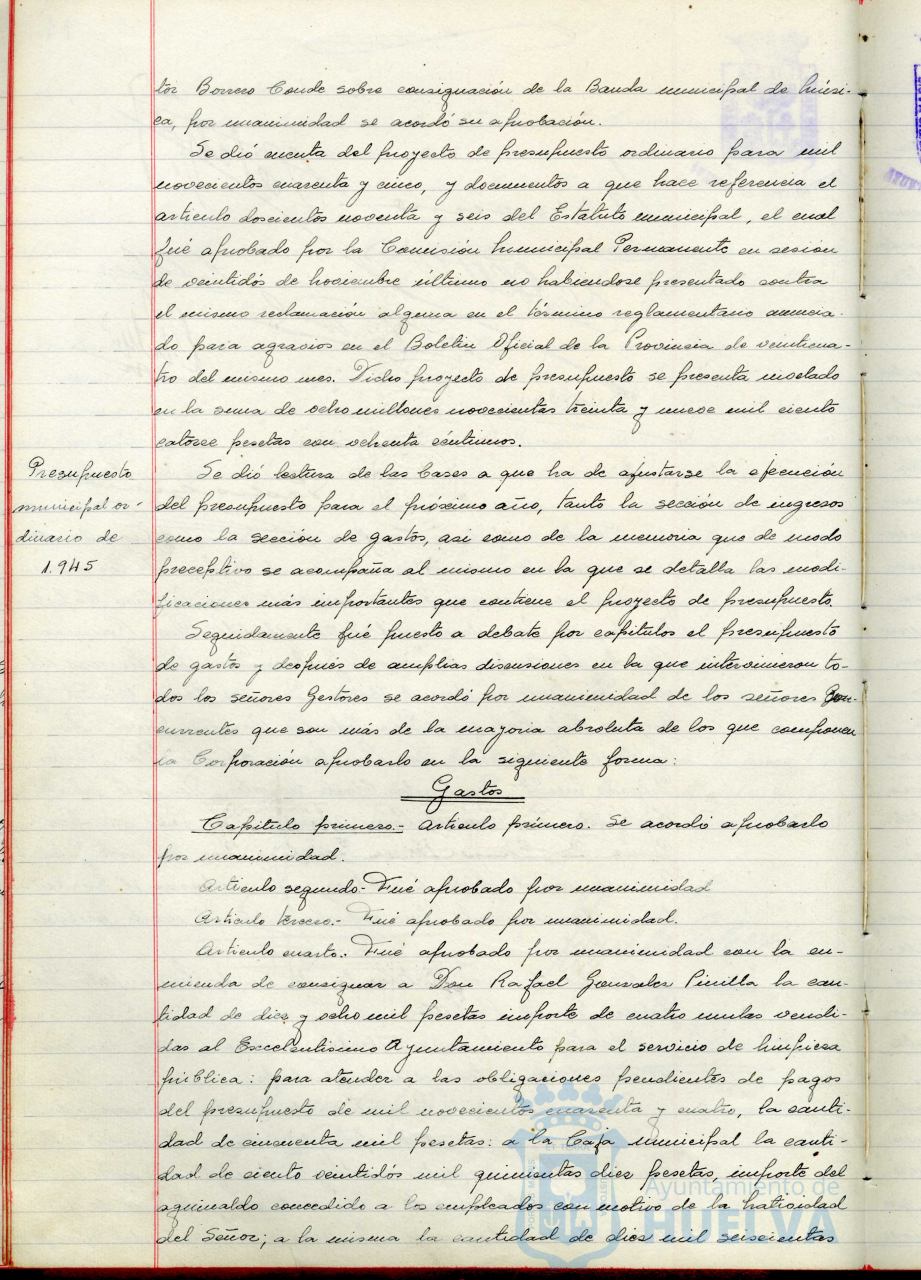 tor Borrero Conde sobre consignación de la Banda municipal de Músi-
ca, por unanimidad se acordó su aprobación.
Se dió cuenta del proyecto de presupuesto ordinario para mil
novecientos cuarenta y cinco, y documentos a que hace referencia el
articulo doscientos noventa y seis del Estatuto municipal, el cual
fué aprobado por la Comisión Municipal Permanente en sesión
de veintidós de Noviembre último no habiendose presentado contra
el mismo reclamación alguna en el término reglamentario anuncia-
do para agravios en el Boletin Oficial de la Provincia de veinticua-
tro del mismo mes. Dicho proyecto de presupuesto se presenta nivelado
en la suma de ocho millones novecientas treinta y nueve mil ciento
catorce pesetas con ochenta céntimos.
Presupuesto
municipal or-
dinario de
1.945
Se dió lectura de las Bases a que ha de ajustarse la ejecución
del presupuesto para el próximo año, tanto la sección de ingresos
como la sección de gastos, asi como de la memoria que de modo
preceptivo se acompaña al mismo en la que se detalla las modi-
ficaciones más importantes que contiene el proyecto de presupuesto.
Seguidamente fué puesto a debate por capitulos el presupuesto
de gastos y después de amplias discusiones en la que intervinieron to-
dos los señores Gestores se acordó por unanimidad de los señores Con-
currentes que son más de la mayoria absoluta de los que componen
la Corporación aprobarlo en la siguiente forma:
Gastos
Capitulo primero.- Articulo primero. Se acordó aprobarlo
por unanimidad.
Articulo segundo.- Fué aprobado por unanimidad
Articulo tercero.- Fué aprobado por unanimidad.
Articulo cuarto.- Fué aprobado por unanimidad con la en-
mienda de consignar a Don Rafael Gonzalez Pinilla la can-
tidad de diez y ocho mil pesetas importe de cuatro mulas vendi-
das al Excelentisimo Ayuntamiento para el servicio de limpieza
pública: para atender a las obligaciones pendientes de pagos
del presupuesto de mil novecientos cuarenta y cuatro, la canti-
dad de cincuenta mil pesetas: a la Caja municipal la canti-
dad de ciento veintidós mil quinientas diez pesetas, importe del
aguinaldo concedido a los empleados con motivo de la Natividad
del Señor; a la misma la cantidad de diez mil seiscientas
Ayuntamiento de
HUELVA